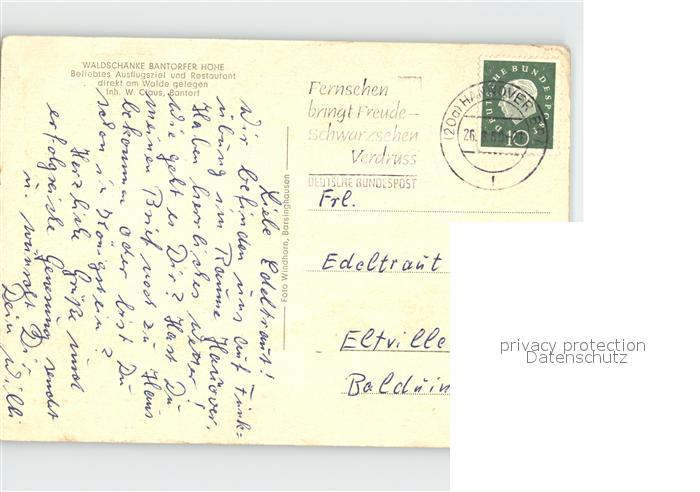 WALDSCHÄNKE BANTORFER HÖHE
Beliebtes Ausflugsziel und Restaurant
direkt am Walde gelegen
Inh. W. Claus, Bantorf
Liebe Edeltraut!
Wir befinden uns auf Funk-
übung im Raume Hannover.
Haben herrliches Wetter!
Wie geht es Dir? Hast Du
meinen Brief noch zu Haus
bekommen oder bist Du
schon in Königstein?
Herzliche Grüße und
erfolgreiche Genesung sendet
u. wünscht Dir
Dein Willi
Foto Windhorn, Barsinghausen
Fernsehen
bringt Freude-
Schwarzsehen
Verdruss
DEUTSCHE BUNDESPOST
(20a) HANNOVER
26.
DEUTSCHE BUNDESPOST
10
Frl.
Edeltraut
Eltville
Balduin
privacy protection
Datenschutz